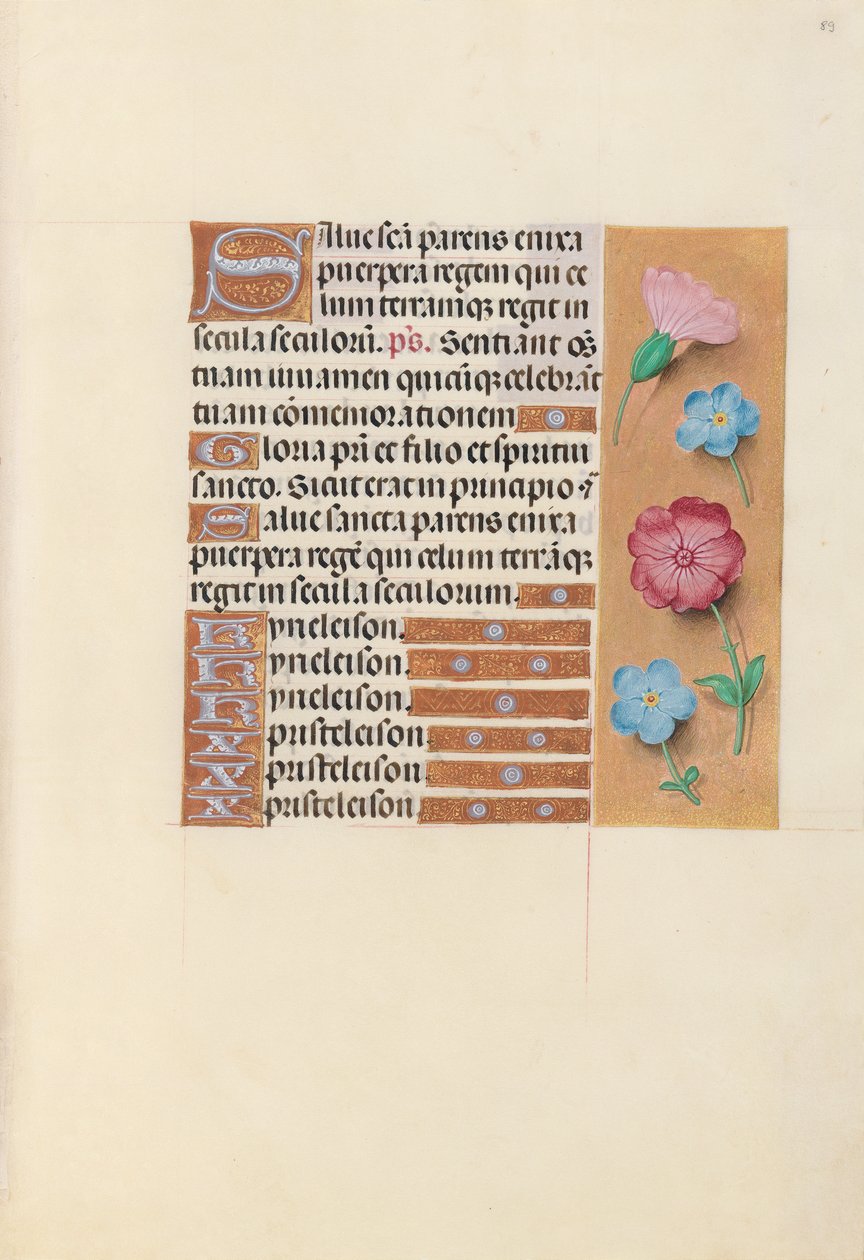 89
Salue scā parens enixa
puerpera regem qui ce
lum terramq̄ꝫ regit in
secula seculorū. p̄s. Sentiant oēs
tuam iuuamen quicūqꝫ celebrāt
tuam cōmemorationem
Gloria pr̄i et filio et spiritui
sancto. Sicut erat in principio ⁊c̄
Salue sancta parens enixa
puerpera regē qui celum terrāqꝫ
regit in secula seculorum.
Kyrieleison.
Kyrieleison.
Kyrieleison.
Xpristeleison
Xpristeleison
Xpristeleison